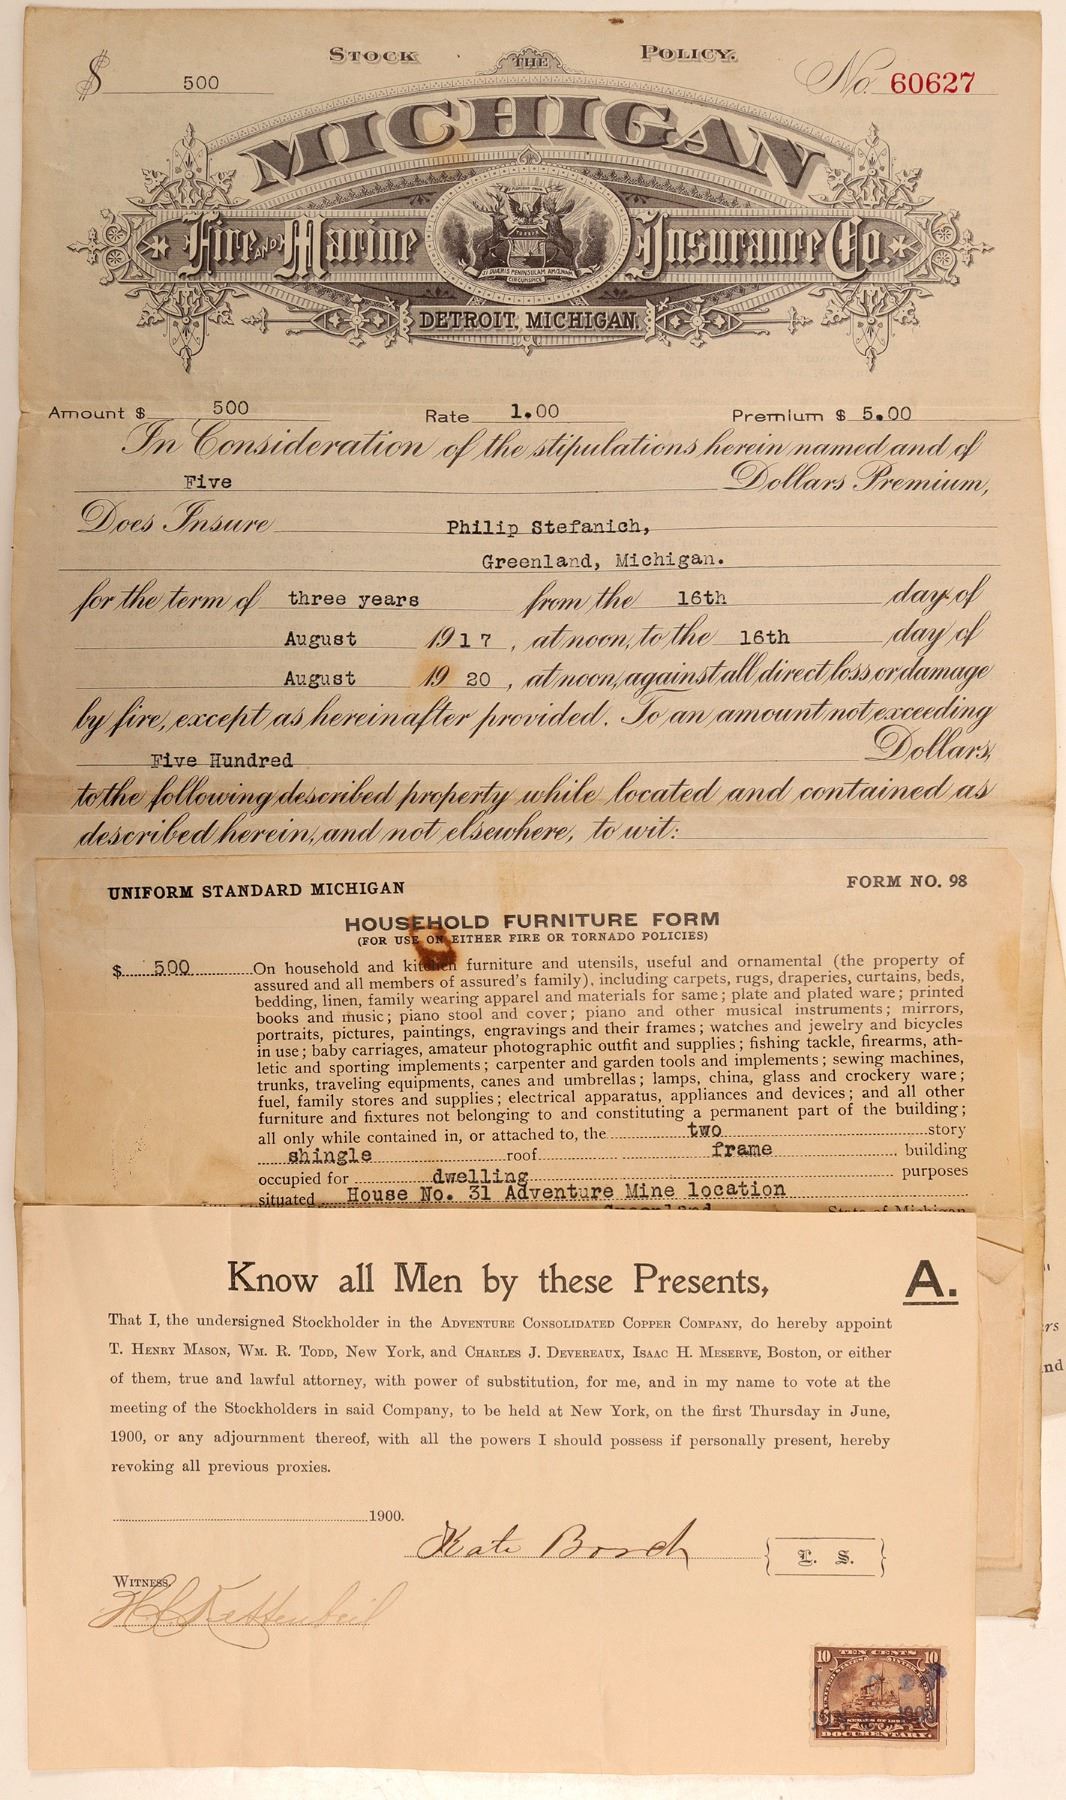 STOCK THE POLICY.
$ 500 No. 60627
MICHIGAN
Fire AND Marine Insurance Co.
TUEBOR
SI QUÆRIS PENINSULAM AMŒNAM
CIRCUMSPICE
DETROIT, MICHIGAN.
Amount $ 500 Rate 1.00 Premium $ 5.00
In Consideration of the stipulations herein named and of
Five Dollars Premium,
Does Insure Philip Stefanich,
Greenland, Michigan.
for the term of three years from the 16th day of
August 1917, at noon, to the 16th day of
August 19 20, at noon, against all direct loss or damage
by fire, except as hereinafter provided. To an amount not exceeding
Five Hundred Dollars,
to the following described property while located and contained as
described herein, and not elsewhere, to wit:
UNIFORM STANDARD MICHIGAN FORM NO. 98
HOUSEHOLD FURNITURE FORM
(FOR USE ON EITHER FIRE OR TORNADO POLICIES)
$ 500 On household and kitchen furniture and utensils, useful and ornamental (the property of
assured and all members of assured's family), including carpets, rugs, draperies, curtains, beds,
bedding, linen, family wearing apparel and materials for same; plate and plated ware; printed
books and music; piano stool and cover; piano and other musical instruments; mirrors,
portraits, pictures, paintings, engravings and their frames; watches and jewelry and bicycles
in use; baby carriages, amateur photographic outfit and supplies; fishing tackle, firearms, ath-
letic and sporting implements; carpenter and garden tools and implements; sewing machines,
trunks, traveling equipments, canes and umbrellas; lamps, china, glass and crockery ware;
fuel, family stores and supplies; electrical apparatus, appliances and devices; and all other
furniture and fixtures not belonging to and constituting a permanent part of the building;
all only while contained in, or attached to, the two story
shingle roof frame building
occupied for dwelling purposes
situated House No. 31 Adventure Mine location
Greenland State of Michigan
Know all Men by these Presents, A.
That I, the undersigned Stockholder in the ADVENTURE CONSOLIDATED COPPER COMPANY, do hereby appoint
T. HENRY MASON, WM. R. TODD, New York, and CHARLES J. DEVEREAUX, ISAAC H. MESERVE, Boston, or either
of them, true and lawful attorney, with power of substitution, for me, and in my name to vote at the
meeting of the Stockholders in said Company, to be held at New York, on the first Thursday in June,
1900, or any adjournment thereof, with all the powers I should possess if personally present, hereby
revoking all previous proxies.
1900.
Kate L. S.
WITNESS.
10 TEN CENTS 10
DOCUMENTARY.